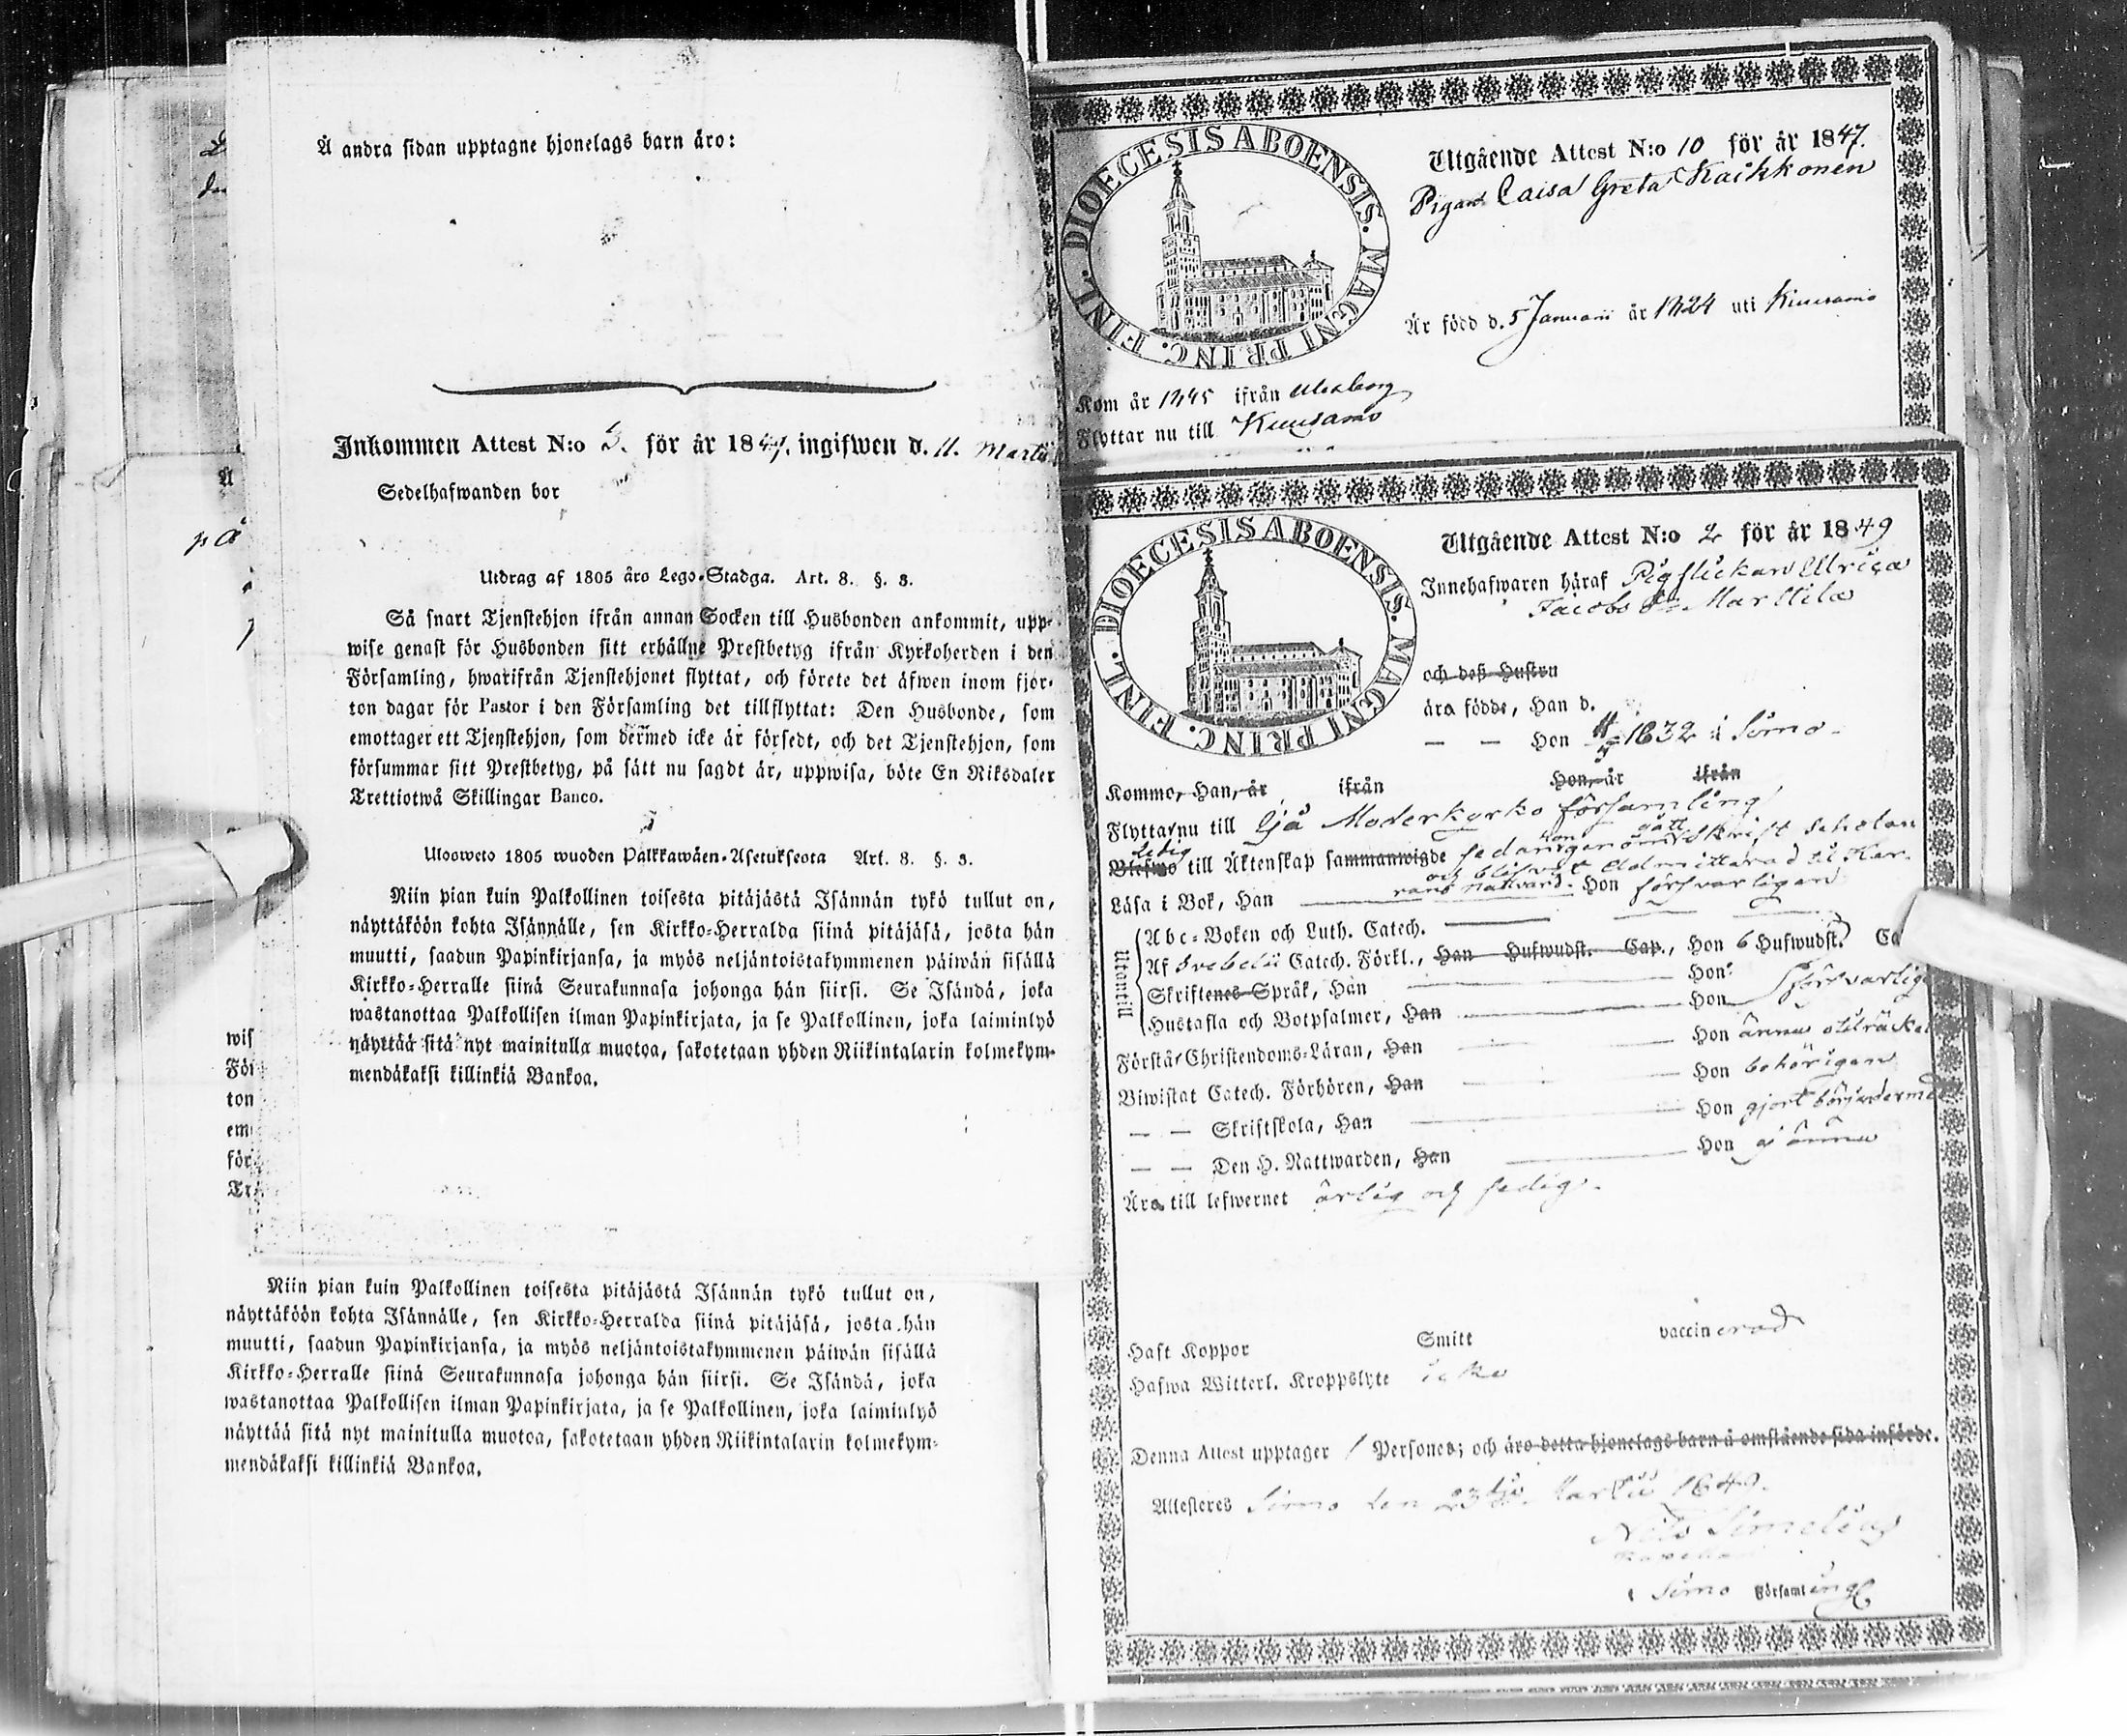 Å andra sidan upptagne hjonelags barn äro:
Inkommen Attest N:o 3. för år 1847. ingifwen d. 11. Martii
Sedelhafwanden bor
Utdrag af 1805 åro Lego-Stadga. Art. 8. §. 3.
Så snart Tjenstehjon ifrån annan Socken till Husbonden ankommit, upp-
wise genast för Husbonden sitt erhållne Prestbetyg ifrån Kyrkoherden i den
Församling, hwarifrån Tjenstehjonet flyttat, och förete det äfwen inom fjor-
ton dagar för Pastor i den Församling det tillflyttat: Den Husbonde, som
emottager ett Tjenstehjon, som dermed icke är försedt, och det Tjenstehjon, som
försummar sitt Prestbetyg, på sätt nu sagdt är, uppwisa, böte En Riksdaler
Trettiotwå Skillingar Banco.
Ulosweto 1805 wuoden Palkkawäen-Asetuksesta Art. 8. §. 3.
Niin pian kuin Palkollinen toisesta pitäjästä Isännän tykö tullut on,
näyttäköön kohta Isännälle, sen Kirkko-Herralda siinä pitäjäsä, josta hän
muutti, saadun Papinkirjansa, ja myös neljäntoistakymmenen päiwän sisällä
Kirkko-Herralle siinä Seurakunnasa johonga hän siirsi. Se Isändä, joka
wastanottaa Palkollisen ilman Papinkirjata, ja se Palkollinen, joka laiminlyö
näyttää sitä nyt mainitulla muotoa, sakotetaan yhden Riikintalarin kolmekym-
mendäkaksi killinkiä Bankoa.
på
wis
För
ton
em
för
Tr
Niin pian kuin Palkollinen toisesta pitäjästä Isännän tykö tullut on,
näyttäköön kohta Isännälle, sen Kirkko-Herralda siinä pitäjäsä, josta hän
muutti, saadun Papinkirjansa, ja myös neljäntoistakymmenen päiwän sisällä
Kirkko-Herralle siinä Seurakunnasa johonga hän siirsi. Se Isändä, joka
wastanottaa Palkollisen ilman Papinkirjata, ja se Palkollinen, joka laiminlyö
näyttää sitä nyt mainitulla muotoa, sakotetaan yhden Riikintalarin kolmekym-
mendäkaksi killinkiä Bankoa.
DIOECESIS ABOENSIS. MAGNI PRINC. FINL.
Utgående Attest N:o 10 för år 1847.
Pigan Caisa Greta Kaikkonen
Är född d. 5 Januarii år 1824 uti Kuusamo
Kom år 1845 ifrån Uleåborg
Flyttar nu till Kuusamo
DIOECESIS ABOENSIS. MAGNI PRINC. FINL.
Utgående Attest N:o 2 för år 1849
Innehafwaren häraf Pigflickan Ulrica
Jacobs dr Marttila
och dess Hustru
äro födde, Han d.
— — Hon 1832 i Simo
Kommo, Han, år ifrån Hon, år ifrån
Flyttar nu till Ijå Moderkyrko församling
Ledig
Blefwo till Äktenskap sammanwigde sedan hon genomgått skrift scholan
och blifvit admitterad til Her-
rans nattvard.
Läsa i Bok, Han Hon försvarligen
Utantill
Abc-Boken och Luth. Catech.
Af Svebelii Catech. Förkl., Han Hufwudst. Cap., Hon 6 Hufwudst. Ca
Skriftenes Språk, Han Hon
Hustafla och Botpsalmer, Han Hon försvarlig
Förstår Christendoms-Läran, Han Hon ännu otilräckel
Biwistat Catech. Förhören, Han Hon behörigen
— — Skriftskola, Han Hon gjort början dermed
— — Den H. Nattwarden, Han Hon ej ännu
Äro till lefwernet ärlig och sedig.
Haft Koppor Smitt vaccinerad
Hafwa Witterl. Kroppslyte icke
Denna Attest upptager 1 Persones; och äro detta hjonelags barn å omstående sida införde.
Attesteres Simo den 23dje Martii 1849.
Nils Simelius
Kapellan
i Simo Församling